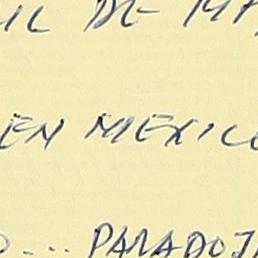 IL DE MA
EN MEXICO
O... PARADOJI